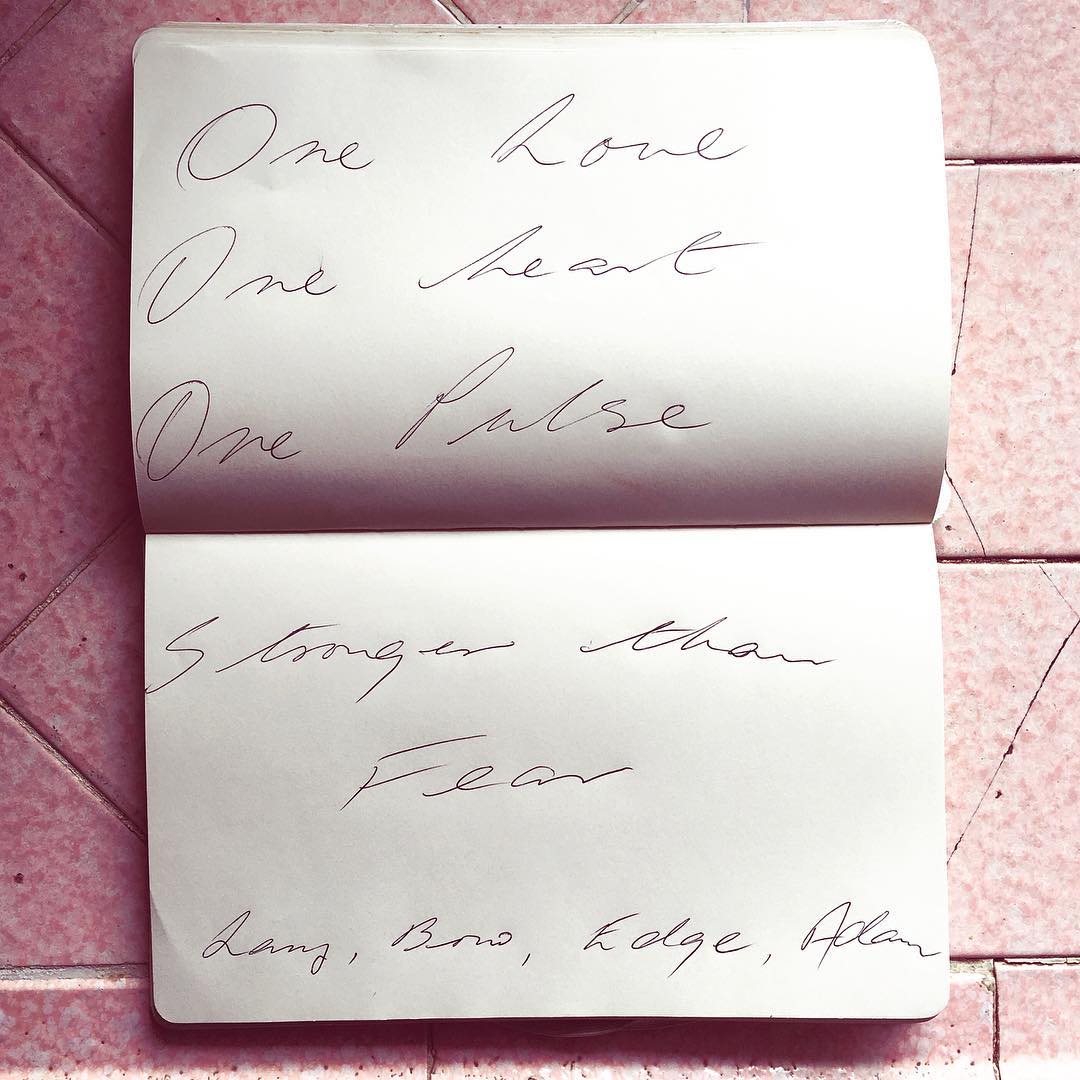 One Love
One heart
One Pulse
Stronger than
Fear
Larry, Bono, Edge, Adam